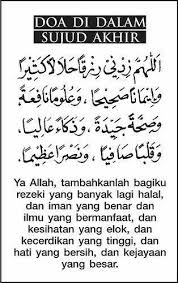 DOA DI DALAM
SUJUD AKHIR
اَللّٰهُمَّ زِدْنِي رِزْقًا حَلَالًا كَثِيْرًا
وَاِيْمَانًا صَحِيْحًا، وَعُلُوْمًا نَافِعَةً
وَصِحَّةً جَيِّدَةً، وَذَكَاءً عَالِيًا،
وَقَلْبًا صَافِيًا، وَنَصْرًا عَظِيْمًا.
Ya Allah, tambahkanlah bagiku
rezeki yang banyak lagi halal,
dan iman yang benar dan
ilmu yang bermanfaat, dan
kesihatan yang elok, dan
kecerdikan yang tinggi, dan
hati yang bersih, dan kejayaan
yang besar.